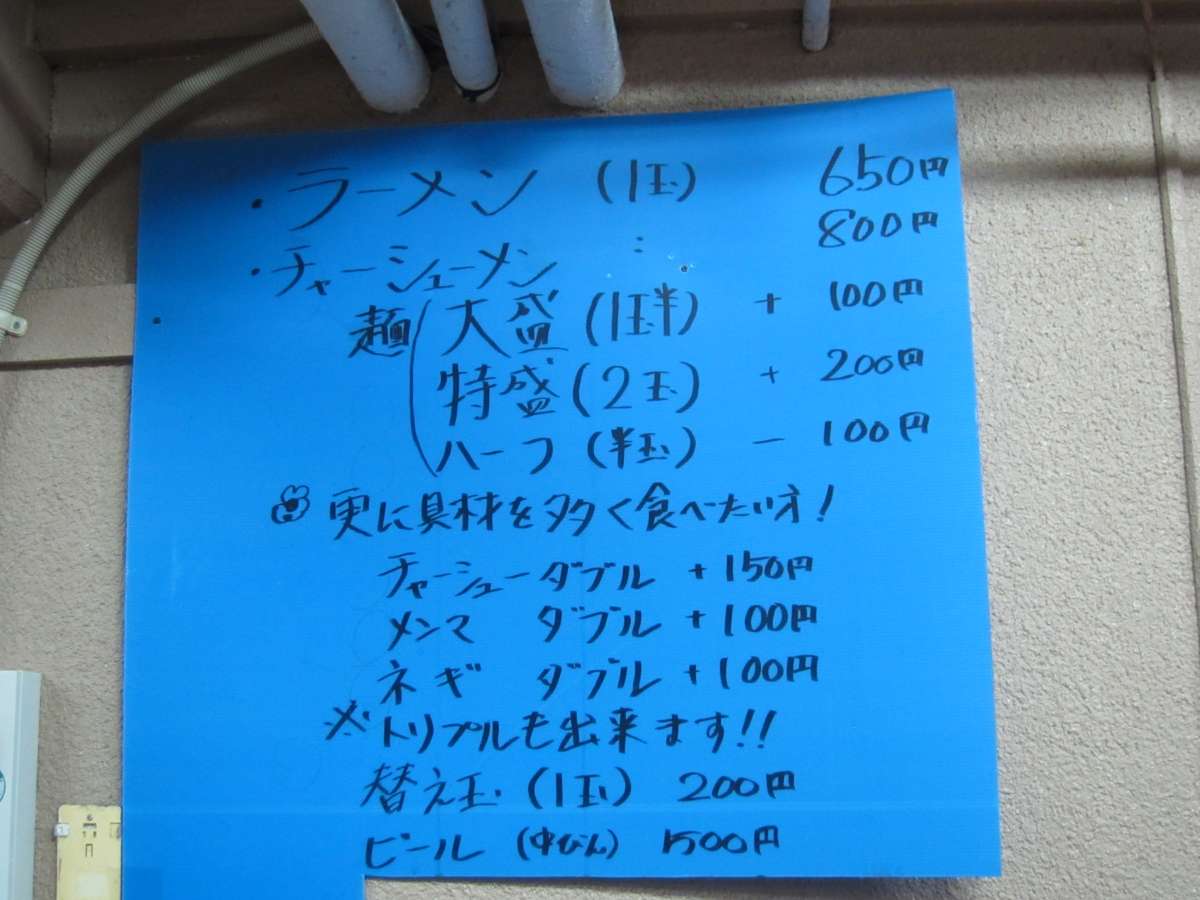 ・ラーメン (1玉) 650円
・チャーシューメン 〃 800円
麺 大盛 (1玉半) + 100円
特盛 (2玉) + 200円
ハーフ (半玉) - 100円
更に具材を多く食べたい方!
チャーシューダブル +150円
メンマ ダブル +100円
ネギ ダブル +100円
※トリプルも出来ます!!
替え玉 (1玉) 200円
ビール (中びん) 500円